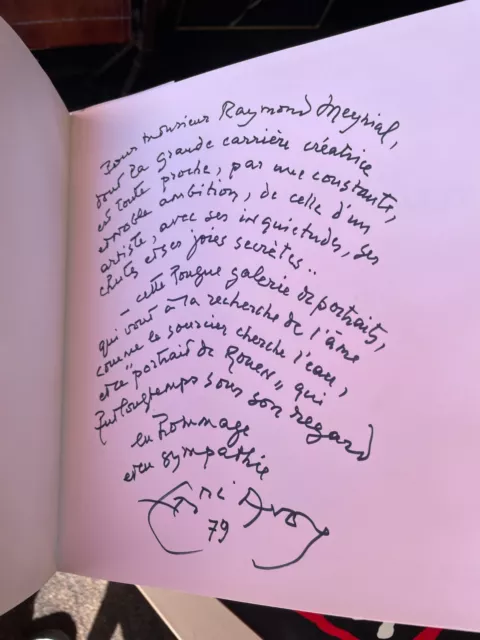 Pour monsieur Raymond Meyrial,
dont la grande carrière créatrice
est toute proche, par une constante,
et noble ambition, de celle d'un
artiste, avec ses inquiétudes, ses
chutes et ses joies secrètes..
– cette longue galerie de portraits,
qui vont à la recherche de l'âme
comme le sourcier cherche l'eau,
et ce "portrait de Rouen" qui
fut longtemps sous son regard
en hommage
et en sympathie
79